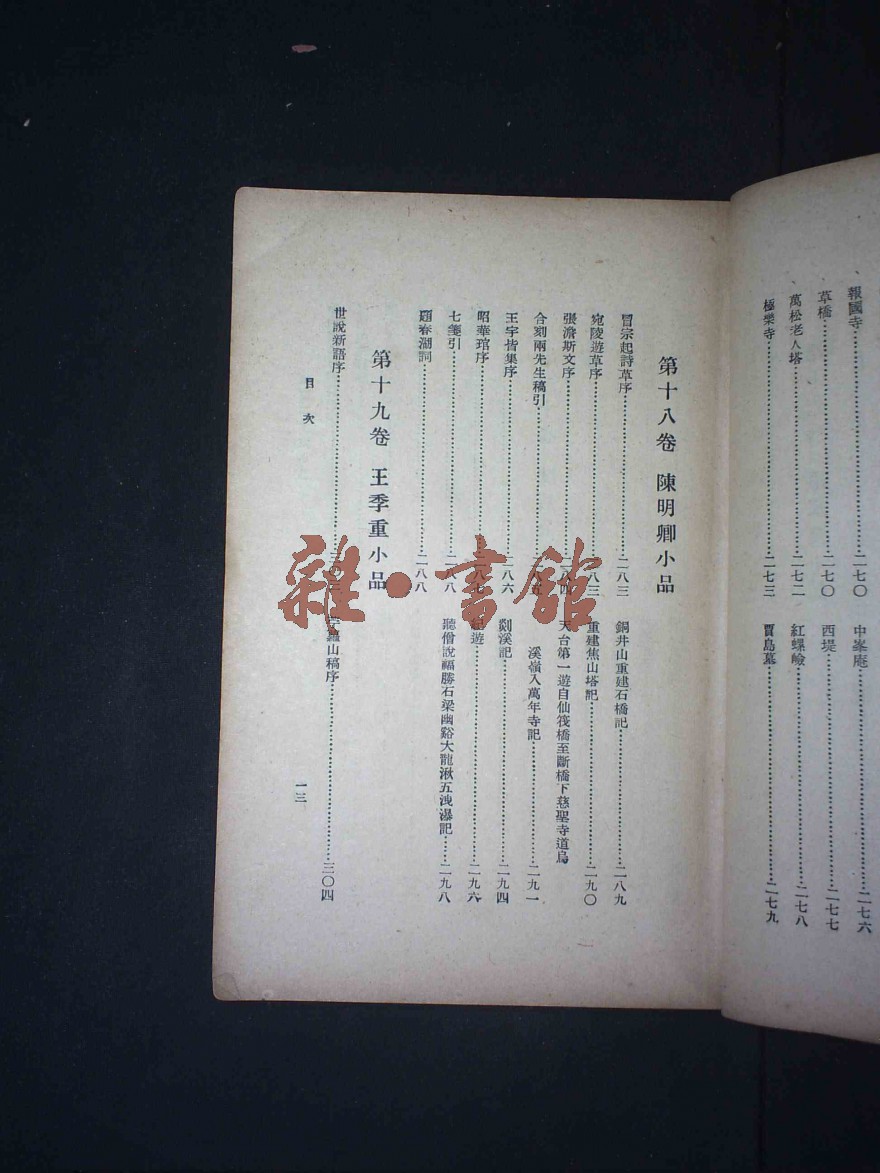 報國寺……二七〇
中峯庵……二七六
草橋……二七〇
西堤……二七七
萬松老人塔……二七二
紅螺嶮……二七八
極樂寺……二七三
賈島墓……二七九
第十八卷 陳明卿小品
冒宗起詩草序……二八三
銅井山重建石橋記……二八九
宛陵遊草序……二八三
重建焦山塔記……二九〇
張澹斯文序……二八四
天台第一遊自仙筏橋至斷橋下慈聖寺道烏
溪嶺入萬年寺記……二九一
合刻兩先生稿引……二八五
王宇皆集序……二八六
剡溪記……二九四
昭華琯序……二八七
紀遊……二九六
七箋引……二八八
聽僧說福勝石梁幽谿大龍湫五洩瀑記……二九八
題春湖詞……二八八
第十九卷 王季重小品
世說新語序
山稿序……三〇四
目次
一三
雜·書館